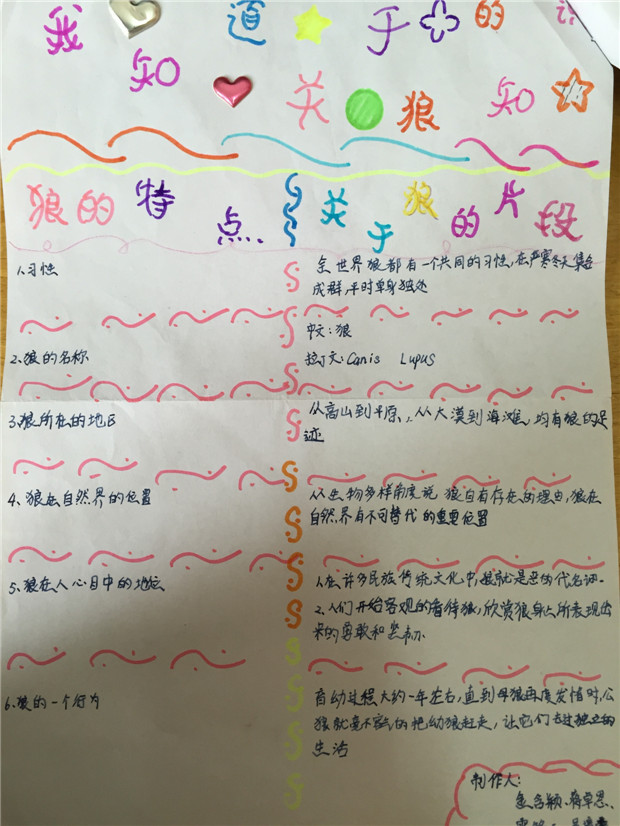 我 道 于 的
知 关 狼 知
狼的特点..
关于狼的片段
1.习性
全世界狼都有一个共同的习性,在严寒冬天集合
成群,平时单身独处
2、狼的名称
中文:狼
拉丁文:Canis Lupus
3.狼所在的地区
从高山到平原,从大漠到海滩,均有狼的足
迹
4、狼在自然界的位置
从生物多样角度说 狼自有存在的理由,狼在
自然界有不可替代的重要位置
5、狼在人心目中的地位
1.在许多民族传统文化中,狼就是恶的代名词。
2.人们开始客观的看待狼,欣赏狼身上所表现出
来的勇敢和坚韧
6、狼的一个行为
育幼过程大约一年左右,直到母狼再度发情时,公
狼就毫不客气的把幼狼赶走,让它们去过独立的
生活
制作人: